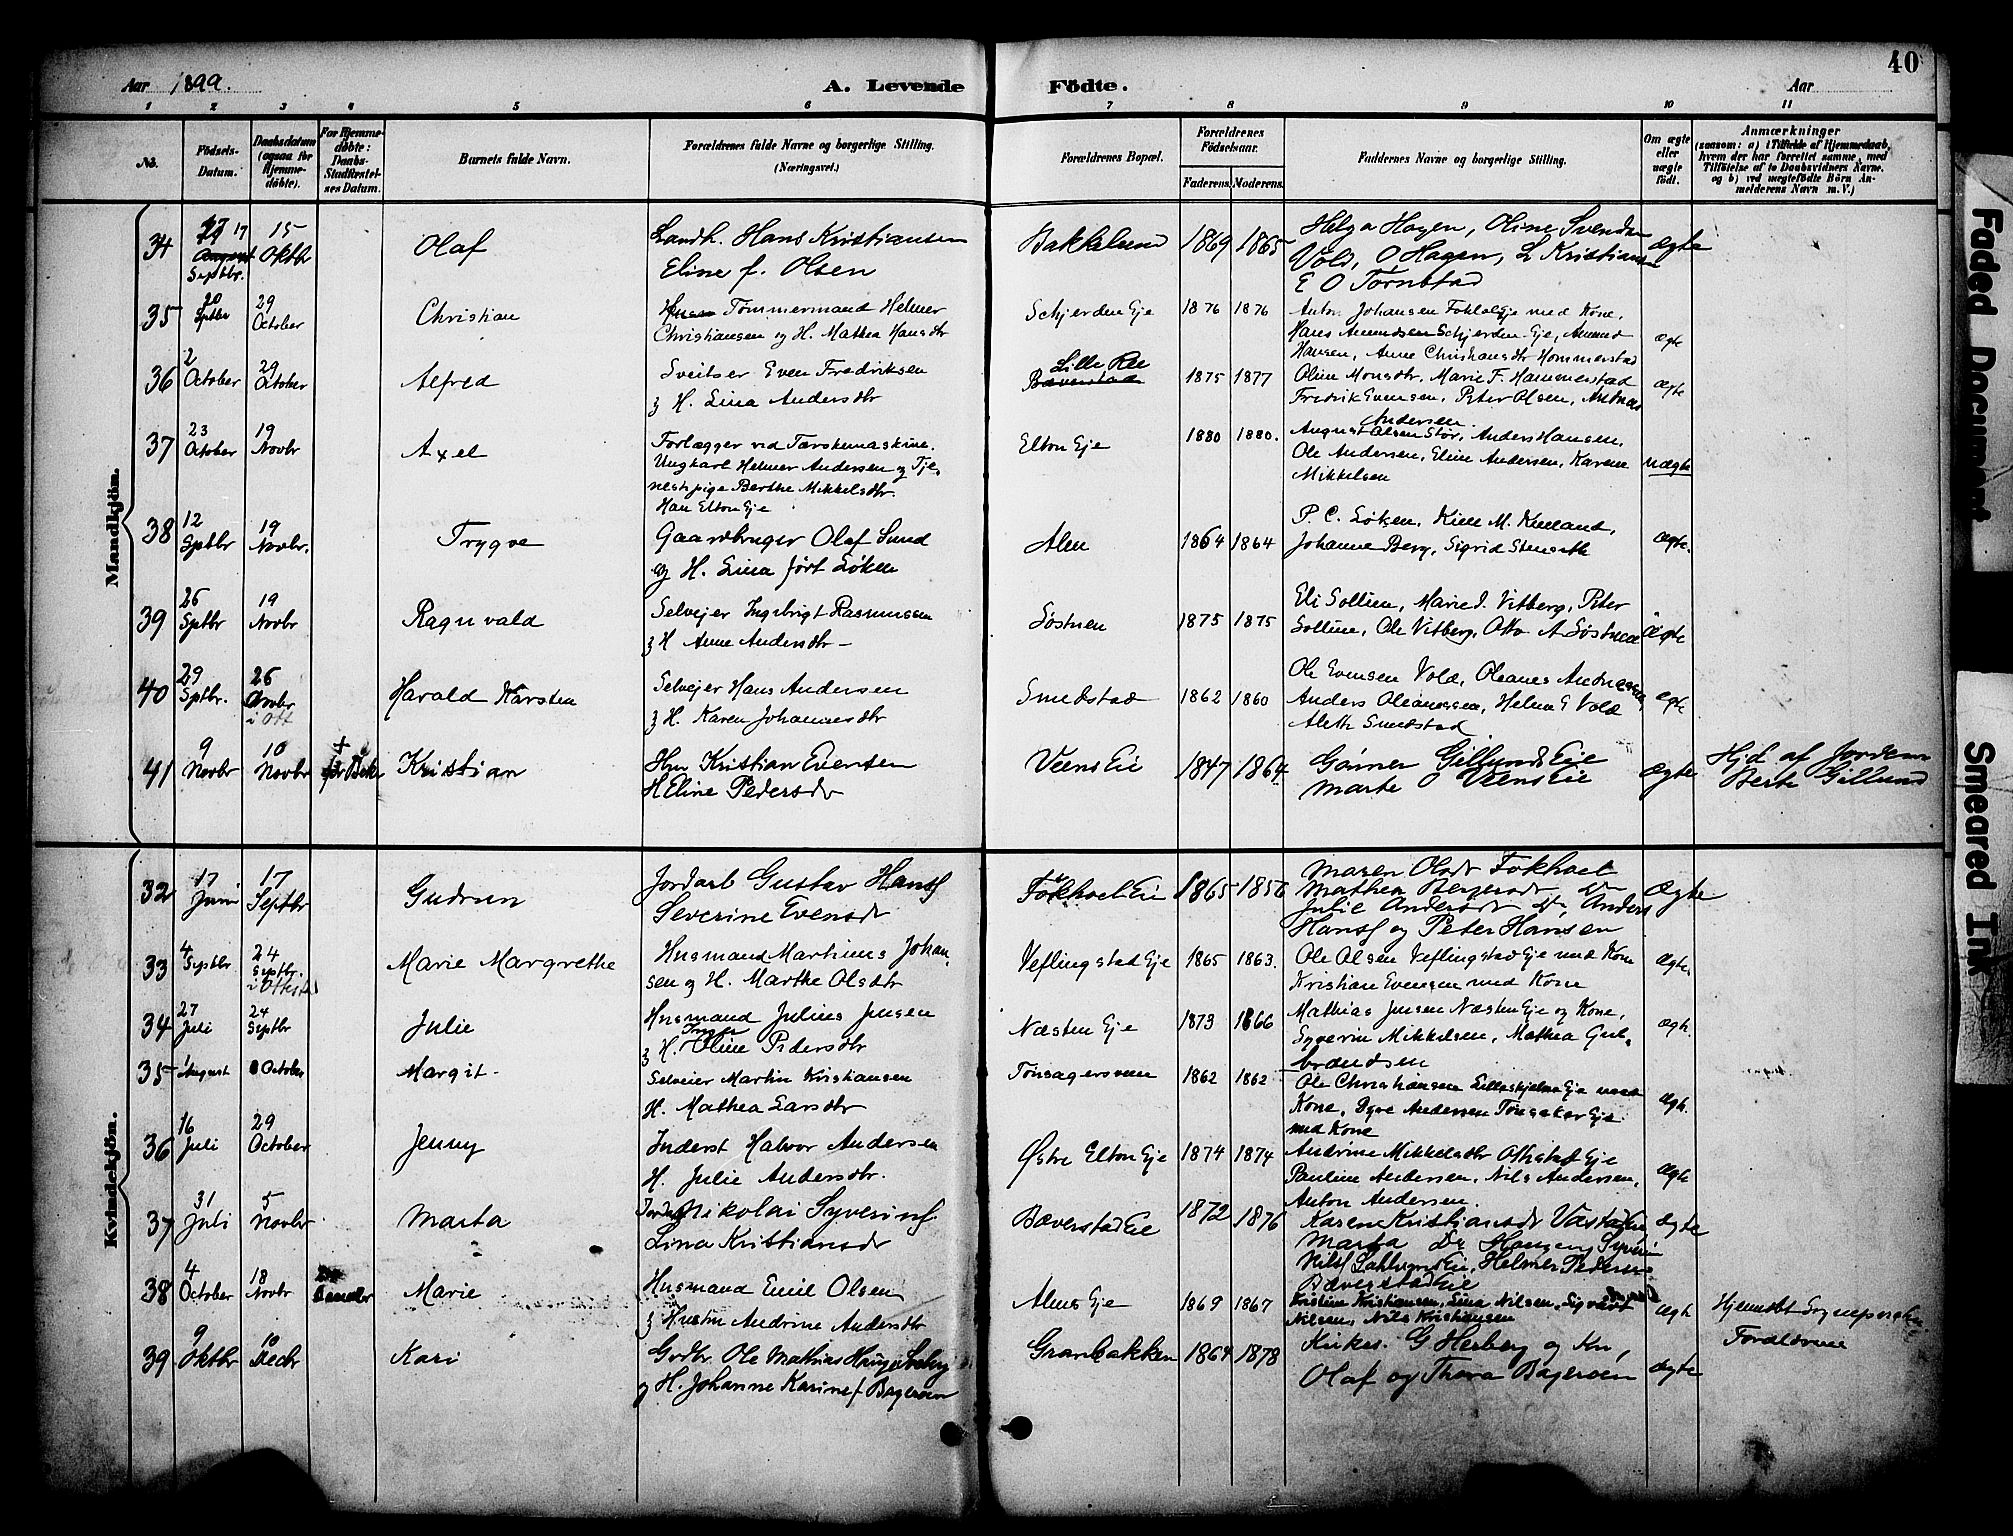 40
Aar 1899. A. Levende Födte. Aar
1 2 3 4 5 6 7 8 9 10 11
No. Födsels-Datum. Daabsdatum (ogsaa for Hjemme-döbte). For Hjemme-döbte: Daabs-Stadfæstel-ses Datum. Barnets fulde Navn. Forældrenes fulde Navne og borgerlige Stilling. (Næringsvei.) Forældrenes Bopæl. Forældrenes Födselsaar. Faderens. Moderens. Faddernes Navne og borgerlige Stilling. Om ægte eller uægte födt. Anmærkninger (saasom: a) i Tilfælde af Hjemmedaab, hvem der har forrettet samme, med Tilföielse af to Daabsvidners Navne. og b) ved uægtefödte Börn An-melderens Navn m. V.)
Mandkjön.
34 17 Septbr. 15 Oktbr Olaf Landh. Hans Kristiansen
Eline f. Olsen
Bakkelund 1869 1865 Helga Hagen, Oline Svendsen
Vold, O Hagen, L Kristiansen
E O Tørnstad
ægte
35 20 Sptbr 29 October Christian Tømmermand Helmer
Christiansen og H. Mathea Hansdtr
Schjerden Eje 1876 1876 Anton Johansen Fokhol Eje med Kone,
Hans Amundsen Schjerden Eje, Amund
Hansen, Anne Christiansdtr Hommerstad
ægte
36 2 October 29 October Alfred Sveitser Even Fredriksen
& H. Lina Andersdtr
Lille Ree
Bæverstad
1875 1877 Oline Monsdtr, Marie F. Hammerstad
Fredrik Evensen, Peter Olsen, Andreas
Andersen
ægte
37 23 October 19 Novbr Axel Forlægger ved Tærskemaskine.
Ungkarl Helmer Andersen og Tje-
nestepige Berthe Mikkelsdtr.
Han Elton Eje
Elton Eje 1880 1880. August Olsen Stor, Anders Hansen,
Ole Andersen, Eline Andersen, Karene
Mikkelsen
uægte
38 12 Sptbr 19 Novbr. Trygve Gaardbruger Olaf Sund
og H. Lina født Løken
Alm 1864 1864 P. C. Løken, Kitte M. Kieland,
Johanne Berg, Sigrid Stenseth
ægte.
39 26 Sptbr 19 Novbr Ragnvald Selvejer Ingebrigt Rasmussen
& H Anne Andersdtr –
Løstuen 1875 1875 Eli Sollien, Marie J. Vitberg, Peter
Sollien, Ole Vitberg, Otto A Løstuen
Ægte
40 29 Sptbr. 26 Novbr i Ott Harald Karsten Selvejer Hans Andersen
& H. Karen Johannesdtr
Smedstad 1862 1860 Ole Evensen Vold, Oleanes Andreassen,
Anders Oleanessen, Helene E Vold
Aleth Smedstad
ægte
41 9 Novbr 10 Novbr + Kristian Hm Kristian Evensen
H Eline Pedersdr
Veens Eie 1847 1864 Görner Gillunds Eie
Marte O Veens Eie
ægte Hjd af Jordem
Berte Gillund
Kvindekjön.
32 17 Juni 17 Septbr Gudrun Jordarb Gustav Hans
Severine Evensdr
Fokhoel Eie 1865 1856 Maren Olsdr Fokhoel
Mathea Bergersdr Do
Julie Andersdr Do, Anders
Hans og Peter Hansen
Ægte
33 4 Septbr 24 Septbr. i Ottestad Marie Margrethe Husmand Martinus Johan-
sen og H. Marthe Olsdtr
Veflingstad Eje 1865 1863. Ole Olsen Veflingstad Eje med Kone
Kristian Evensen med Kone
ægte.
34 27 Juli 24 Septbr Julie Husmand Julius Jensen
& H. Oline Pedersdtr
Næsten Eje 1873 1866 Mathias Jensen Næsten Eje og Kone,
Syverin Mikkelsen, Mathea Gul-
brandsen
ægte.
35 1 August 8 October Margit. Selveier Martin Kristiansen
H. Mathea Larsdtr
Tønsagersveen 1862 1862 Ole Christiansen Lilleskjelve Eje med
Kone, Dyre Andersen Tønsaker Eje
med Kone
ægte.
36 16 Juli 29 October Jenny Inderst Halvor Andersen
H. Julie Andersdtr.
Østre Elton Eje 1874 1874 Andrine Mikkelsdtr Ottestad Eje
Pauline Andersen, Nils Andersen,
Anton Andersen
ægte
37 31 Juli 5 Novbr Marta Jordarb Nikolai Syverins
Lina Kristiansdr
Bæverstad Eie 1872 1876 Karen Kristiansdr
Marta Do Haugen, Syverin
Nils Eie, Helmer Pedersen
Bæverstad Eie
ægte
38 4 October 18 Novbr Marie Husmand Emil Olsen
& Hustru Andrine Andersdtr
Alms Eje 1869 1867 Kristine Kristiansen, Lina Nilsen, Syvert
Nilsen, Nils Kristiansen
ægte Hjemdøbt
Forældrene
39 9 Oktbr 10 Decbr Kari Grdbr. Ole Mathias Haug
og H. Johanne Karine f Bageroen
Granbakken 1864 1878 Kirkes. G Herberg og Kn,
Olaf og Thora Bageroen
ægte
Faded Document
Smeared Ink